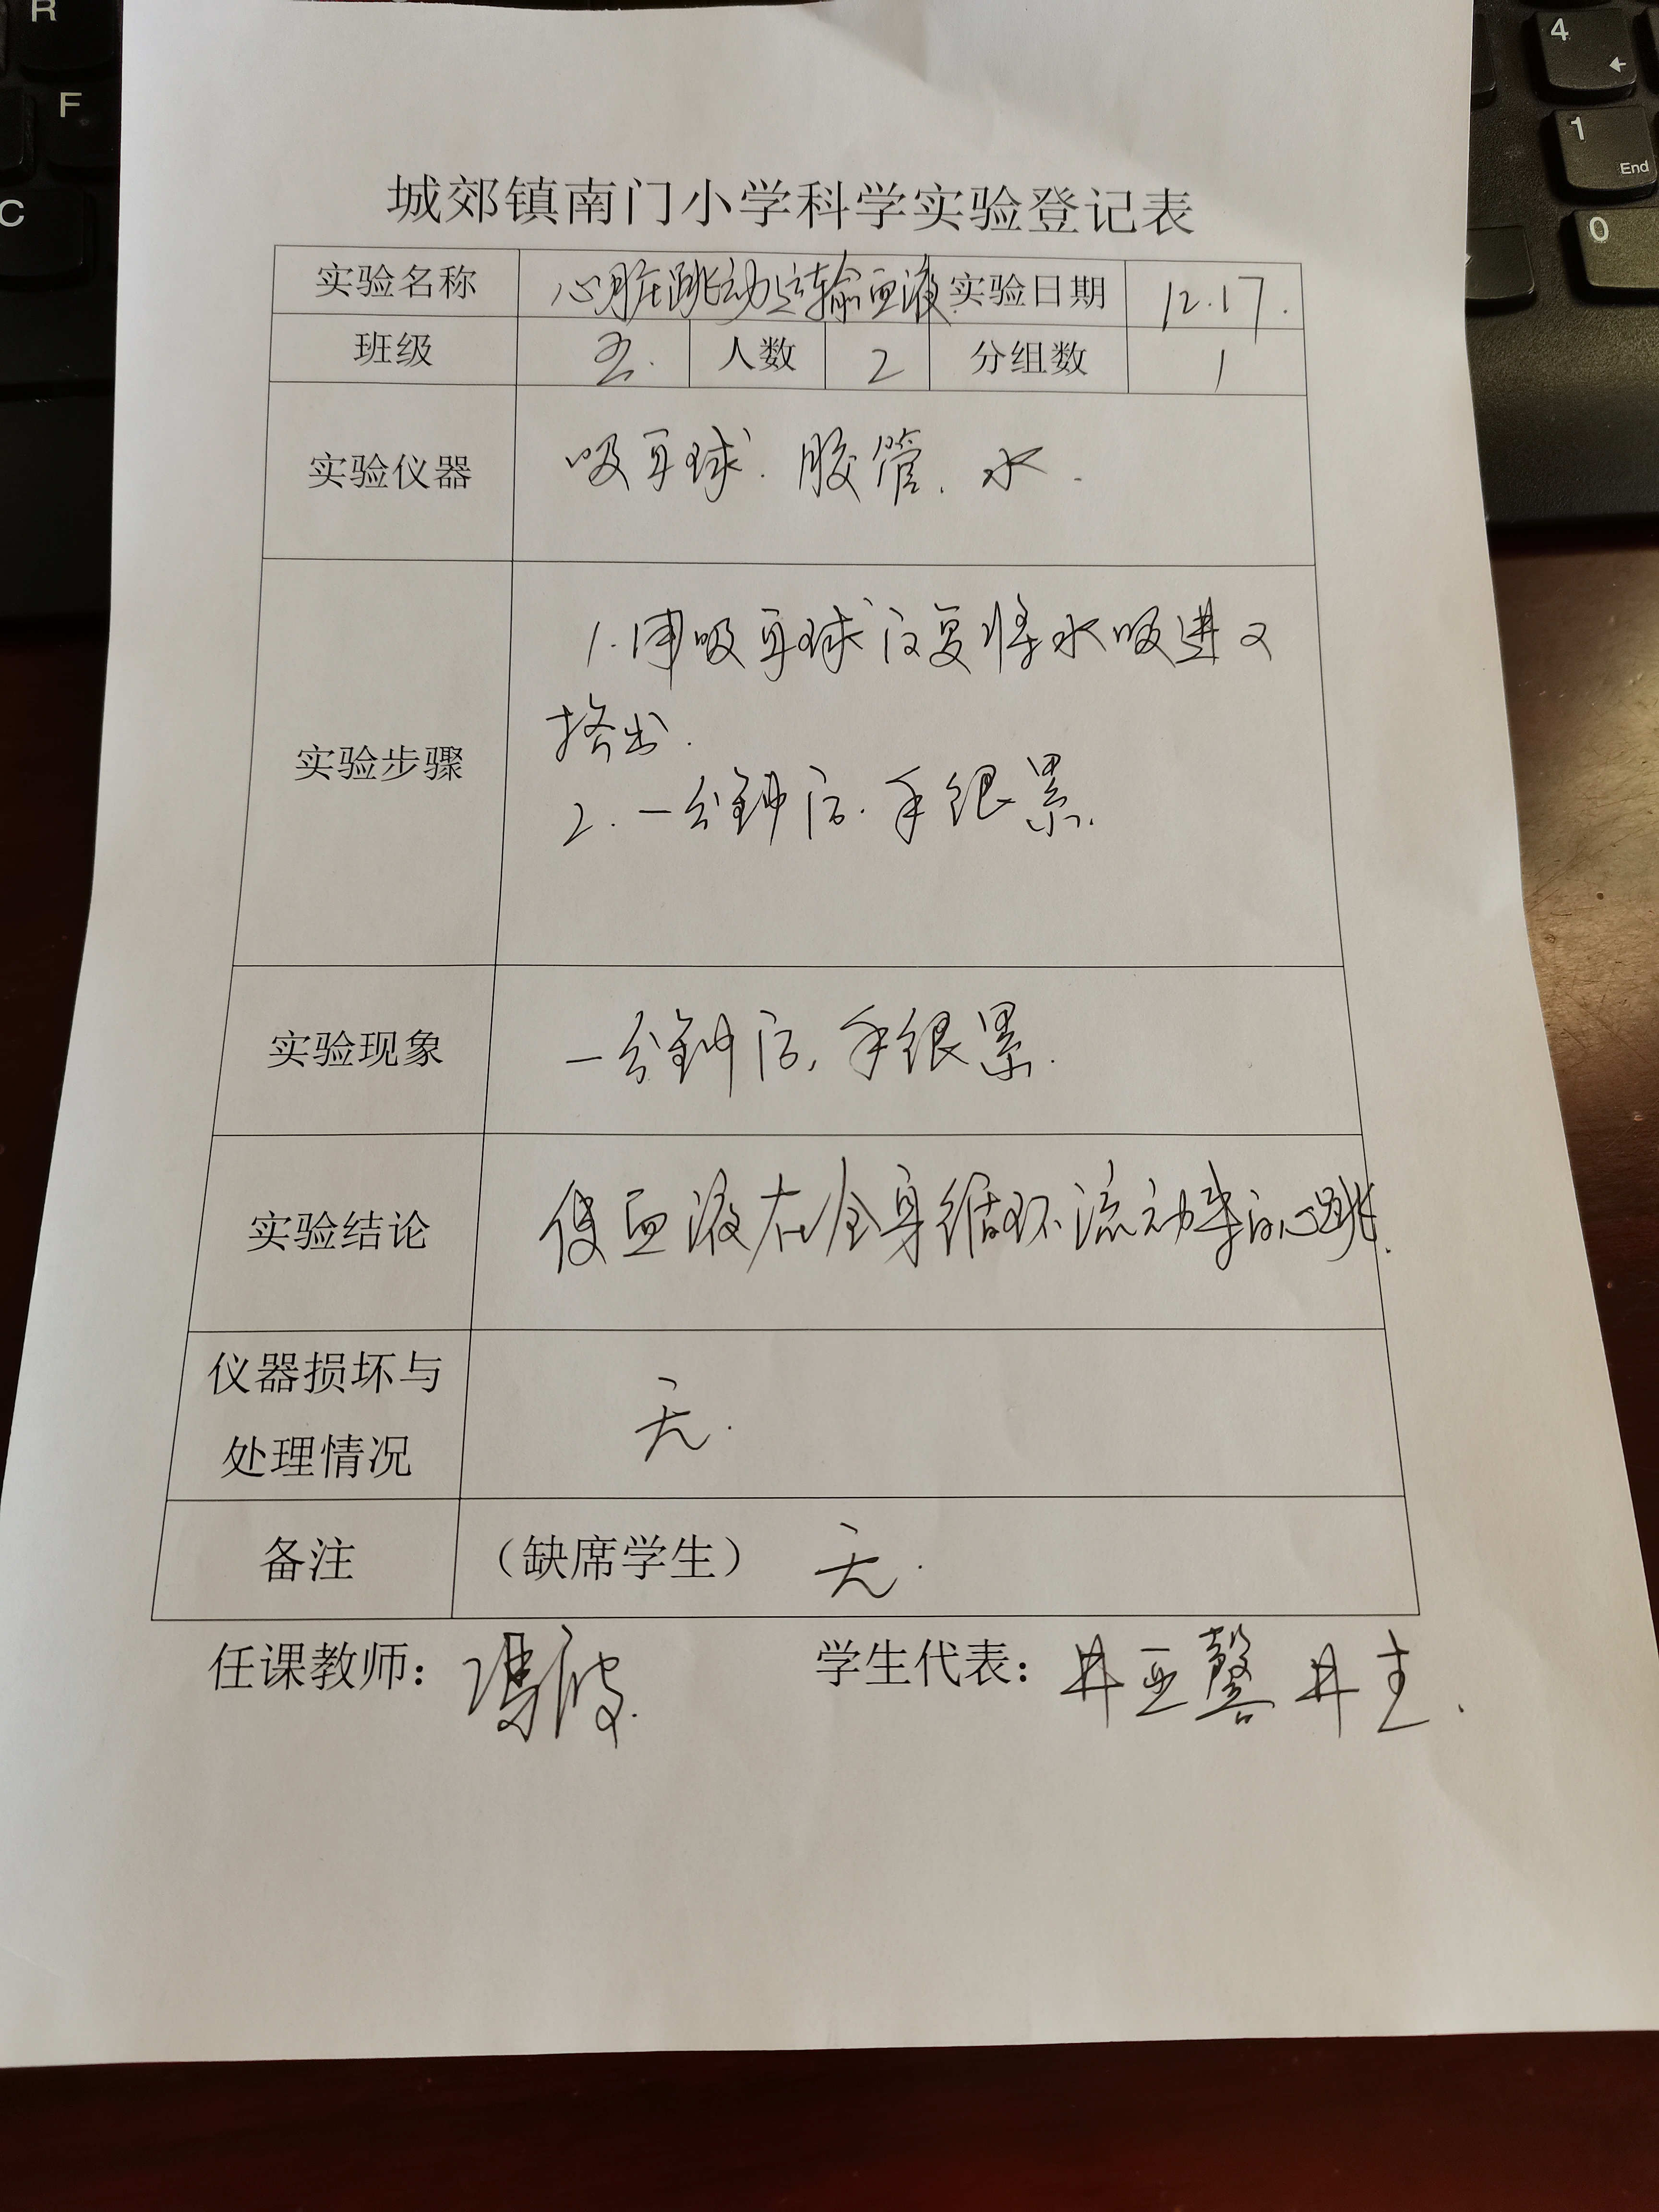 城郊镇南门小学科学实验登记表
实验名称 心脏跳动运输血液 实验日期 12.17.
班级 五. 人数 2 分组数 1
实验仪器 吸耳球. 胶管. 水.
1.用吸耳球反复将水吸进又
挤出.
实验步骤
2.一分钟后.手很累.
实验现象 一分钟后,手很累.
实验结论 使血液在全身循环流动的心跳.
仪器损坏与
处理情况
无.
备注 (缺席学生) 无.
任课教师: 冯波. 学生代表: 井亚馨 井主.
R
F
C
4
1
End
0